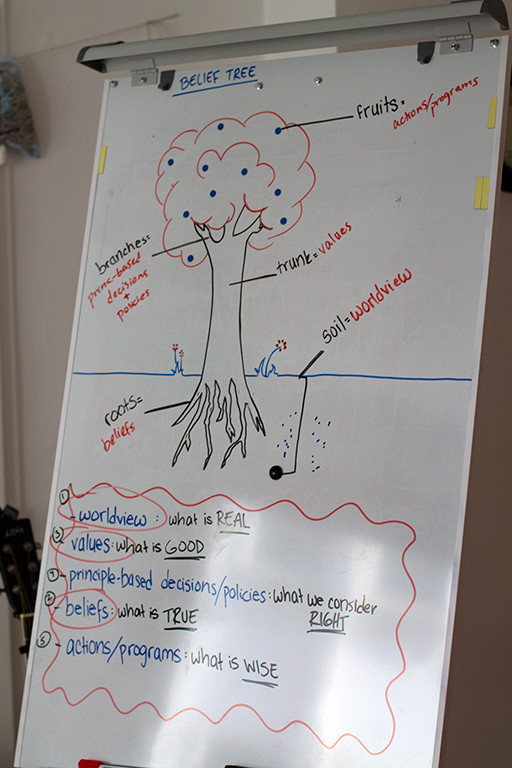 BELIEF TREE
fruits=
actions/programs
branches=
princ-based
decisions
+
policies
trunk=values
soil=worldview
roots=
beliefs
① - worldview : what is REAL
③ - values: what is GOOD
④ - principle-based decisions/policies: what we consider
RIGHT
② - beliefs: what is TRUE
⑤ - actions/programs: what is WISE